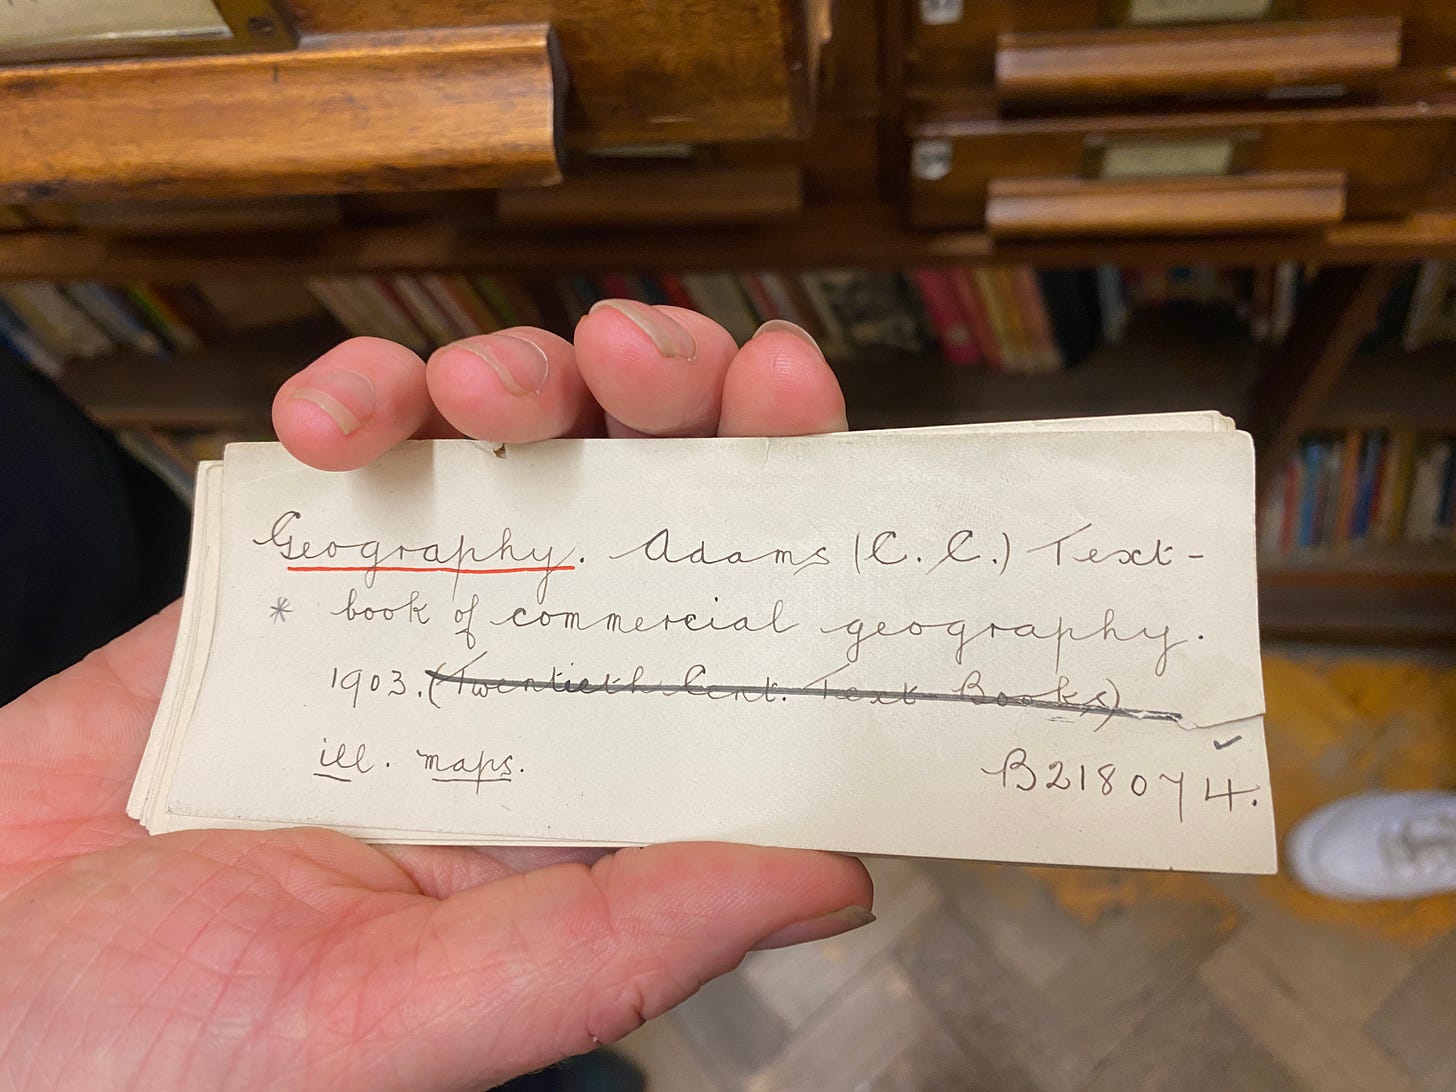 Geography. Adams (C. C.) Text-
* book of commercial geography.
1903. (Twentieth Cent. Text-Books)
ill. maps.
B218074.